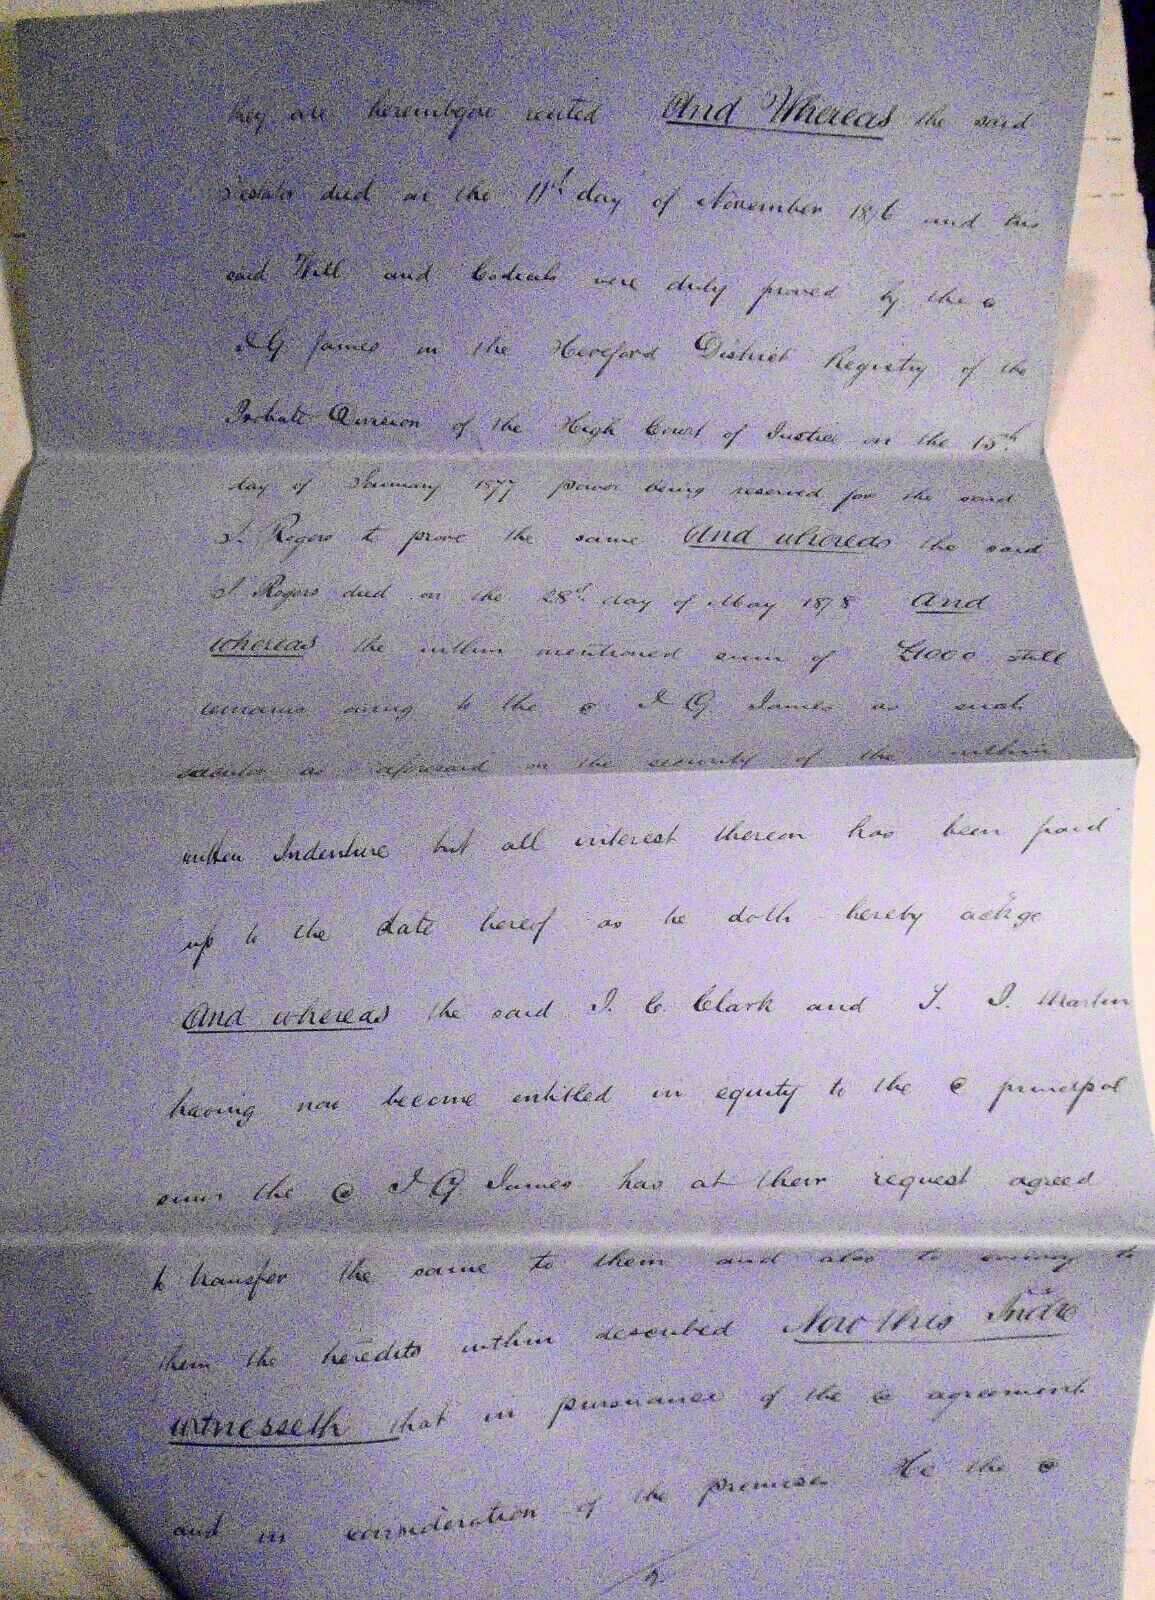 they are hereinbefore recited And Whereas the said
Testator died on the 11th day of November 1876 and his
said Will and Codicils were duly proved by the s
J G James in the Hereford District Registry of the
Probate Division of the High Court of Justice on the 15th
day of January 1877 power being reserved for the said
Rogers to prove the same And whereas the said
Rogers died on the 28th day of May 1878 And
whereas the within mentioned sum of £1000 still
remains owing to the s J G James as such
executor as aforesaid on the security of the within
written Indenture but all interest thereon has been paid
up to the date hereof as he doth hereby ackge
And whereas the said J. C. Clark and T. J. Martin
having now become entitled in equity to the s principal
sum the s J G James has at their request agreed
to transfer the same to them and also to convey to
them the heredits within described Now this Indre
witnesseth that in pursuance of the s agreement
and in consideration of the premises He the s